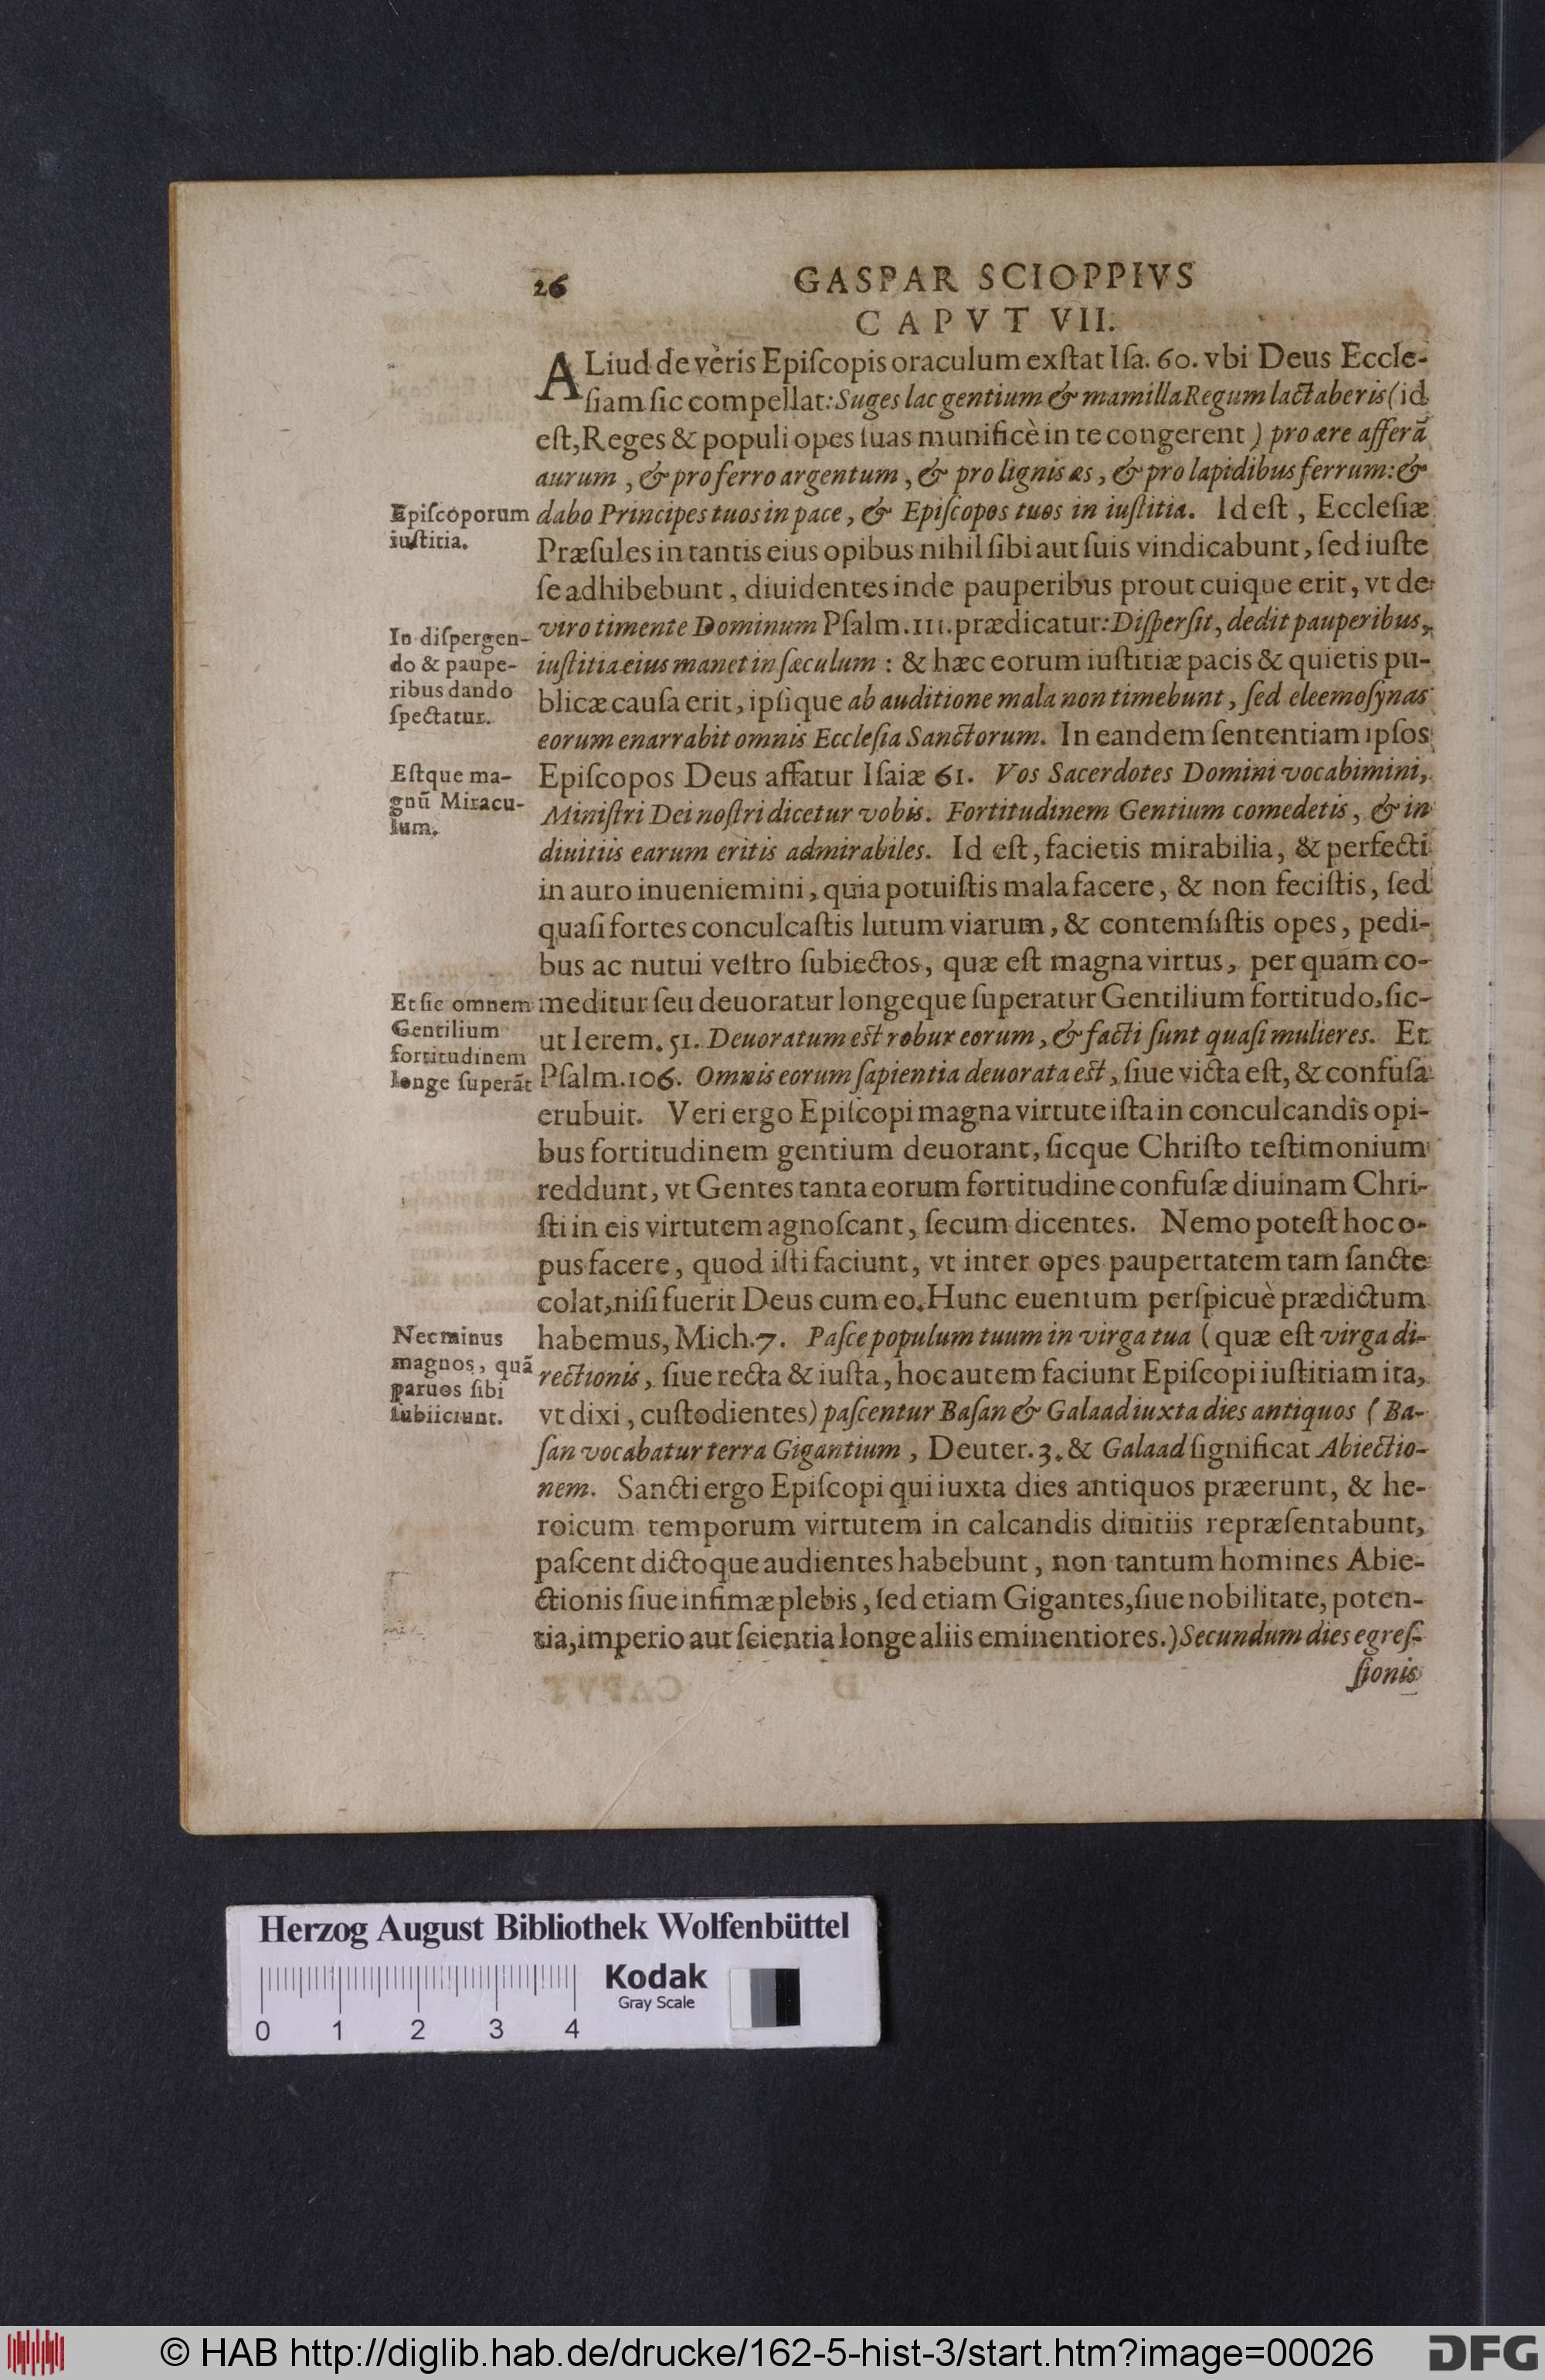 26 GASPAR SCIOPPIVS
CAPVT VII.
ALiud de vèris Epiſcopis oraculum exſtat Iſa. 60. vbi Deus Eccle-
ſiam ſic compellat: Suges lac gentium & mamilla Regum lactaberis (id
eſt, Reges & populi opes ſuas munificè in te congerent) pro ære afferā
aurum, & pro ferro argentum, & pro lignis æs, & pro lapidibus ferrum: &
Epiſcoporum
iuſtitia.
dabo Principes tuos in pace, & Epiſcopos tuos in iuſtitia. Id eſt, Eccleſiæ
Præſules in tantis eius opibus nihil ſibi aut ſuis vindicabunt, ſed iuſte
ſe adhibebunt, diuidentes inde pauperibus prout cuique erit, vt de
In diſpergen-
do & paupe-
ribus dando
ſpectatur.
viro timente Dominum Pſalm. III. prædicatur: Diſperſit, dedit pauperibus,
iuſtitia eius manet in ſæculum: & hæc eorum iuſtitiæ pacis & quietis pu-
blicæ cauſa erit, ipſique ab auditione mala non timebunt, ſed eleemoſynas
eorum enarrabit omnis Eccleſia Sanctorum. In eandem ſententiam ipſos
Eſtque ma-
gnū Miracu-
lum.
Epiſcopos Deus affatur Iſaiæ 61. Vos Sacerdotes Domini vocabimini,
Miniſtri Dei noſtri dicetur vobis. Fortitudinem Gentium comedetis, & in
diuitiis earum eritis admirabiles. Id eſt, facietis mirabilia, & perfecti
in auro inueniemini, quia potuiſtis mala facere, & non feciſtis, ſed
quaſi fortes conculcaſtis lutum viarum, & contemſiſtis opes, pedi-
bus ac nutui veſtro ſubiectos, quæ eſt magna virtus, per quam co-
Et ſic omnem
Gentilium
fortitudinem
longe ſuperāt
meditur ſeu deuoratur longeque ſuperatur Gentilium fortitudo, ſic-
ut Ierem. 51. Deuoratum eſt robur eorum, & facti ſunt quaſi mulieres. Et
Pſalm. 106. Omnis eorum ſapientia deuorata eſt, ſiue victa eſt, & confuſa
erubuit. Veri ergo Epiſcopi magna virtute iſta in conculcandis opi-
bus fortitudinem gentium deuorant, ſicque Chriſto teſtimonium
reddunt, vt Gentes tanta eorum fortitudine confuſæ diuinam Chri-
ſti in eis virtutem agnoſcant, ſecum dicentes. Nemo poteſt hoc o-
pus facere, quod iſti faciunt, vt inter opes paupertatem tam ſancte
colat, niſi fuerit Deus cum eo. Hunc euentum perſpicuè prædictum
Nec minus
magnos, quā
paruos ſibi
ſubiiciunt.
habemus, Mich. 7. Paſce populum tuum in virga tua (quæ eſt virga di-
rectionis, ſiue recta & iuſta, hoc autem faciunt Epiſcopi iuſtitiam ita,
vt dixi, cuſtodientes) paſcentur Baſan & Galaad iuxta dies antiquos (Ba-
ſan vocabatur terra Gigantium, Deuter. 3. & Galaad ſignificat Abiectio-
nem. Sancti ergo Epiſcopi qui iuxta dies antiquos præerunt, & he-
roicum temporum virtutem in calcandis diuitiis repræſentabunt,
paſcent dictoque audientes habebunt, non tantum homines Abie-
ctionis ſiue infimæ plebis, ſed etiam Gigantes, ſiue nobilitate, poten-
tia, imperio aut ſcientia longe aliis eminentiores.) Secundum dies egreſ-
ſionis
Herzog August Bibliothek Wolfenbüttel
Kodak
Gray Scale
0 1 2 3 4
© HAB http://diglib.hab.de/drucke/162-5-hist-3/start.htm?image=00026
DFG